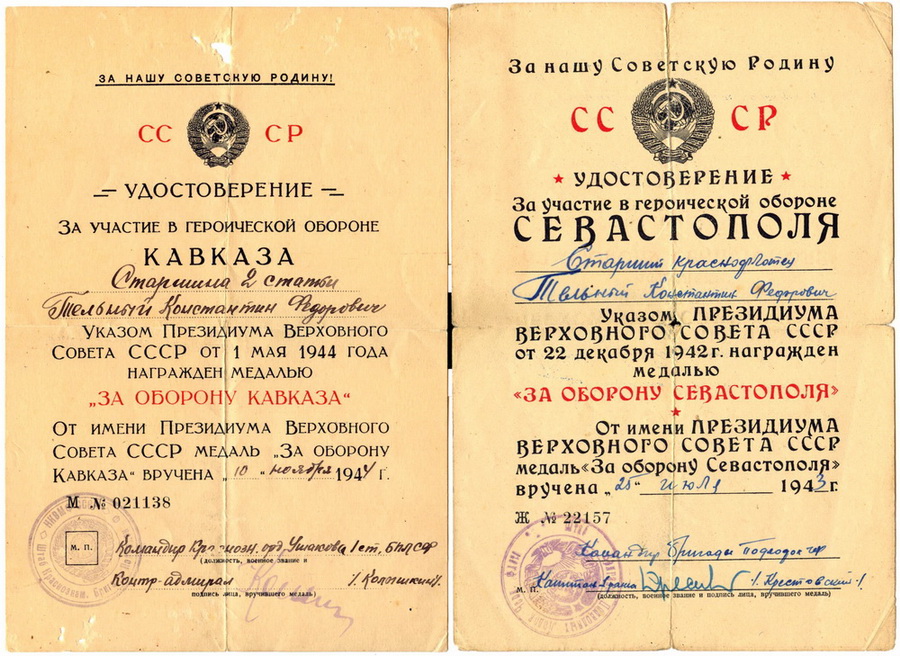 ЗА НАШУ СОВЕТСКУЮ РОДИНУ!
СС СР
УДОСТОВЕРЕНИЕ
ЗА УЧАСТИЕ В ГЕРОИЧЕСКОЙ ОБОРОНЕ
КАВКАЗА
Старшина 2 статьи
Тельный Константин Федорович
УКАЗОМ ПРЕЗИДИУМА ВЕРХОВНОГО
СОВЕТА СССР ОТ 1 МАЯ 1944 ГОДА
НАГРАЖДЕН МЕДАЛЬЮ
„ЗА ОБОРОНУ КАВКАЗА“
ОТ ИМЕНИ ПРЕЗИДИУМА ВЕРХОВНОГО
СОВЕТА СССР МЕДАЛЬ „ЗА ОБОРОНУ
КАВКАЗА“ ВРУЧЕНА „10“ ноября 1944 Г.
М № 021138
М. П.
Командир Краснозн. орд. Ушакова 1 ст. БПЛ
(должность, военное звание и
Контр-адмирал
подпись лица, вручившего медаль)
За нашу Советскую Родину
СС СР
★ УДОСТОВЕРЕНИЕ ★
За участие в героической обороне
СЕВАСТОПОЛЯ
Старший краснофлотец
Тельный Константин Федорович
Указом ПРЕЗИДИУМА
ВЕРХОВНОГО СОВЕТА СССР
от 22 декабря 1942 г. награжден
медалью
«ЗА ОБОРОНУ СЕВАСТОПОЛЯ»
★
От имени ПРЕЗИДИУМА
ВЕРХОВНОГО СОВЕТА СССР
медаль «За оборону Севастополя»
вручена „25“ июля 1943 г.
Ж № 22157
Командир бригады подлодок ЧФ
м. п. Капитан 1 ранга /Крестовский/
(должность, военное звание и подпись лица, вручившего медаль)